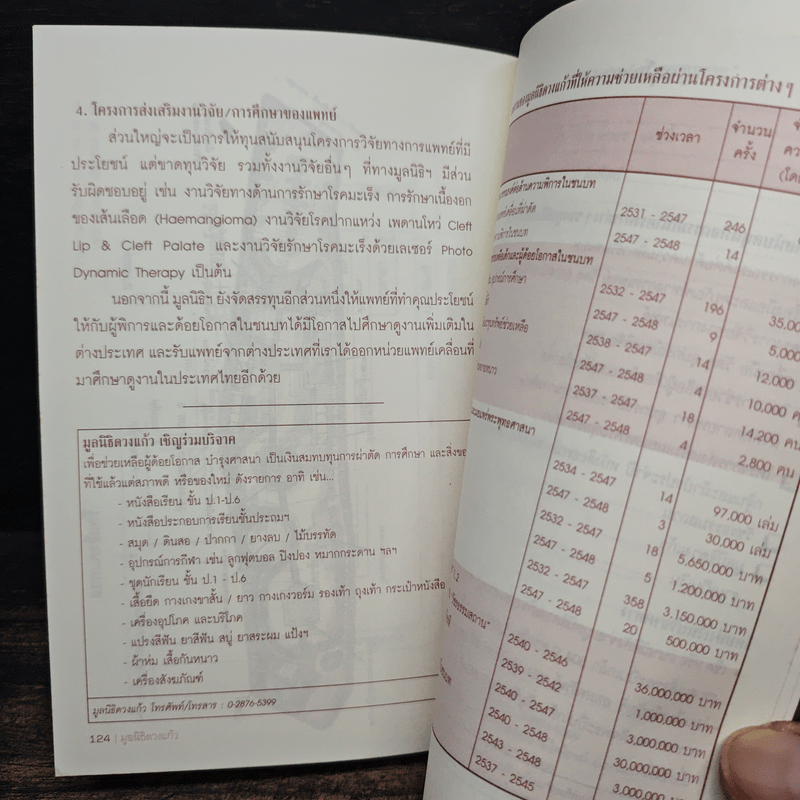 4. โครงการส่งเสริมงานวิจัย/การศึกษาของแพทย์
ส่วนใหญ่จะเป็นการให้ทุนสนับสนุนโครงการวิจัยทางการแพทย์ที่มี
ประโยชน์ แต่ขาดทุนวิจัย รวมทั้งงานวิจัยอื่นๆ ที่ทางมูลนิธิฯ มีส่วน
รับผิดชอบอยู่ เช่น งานวิจัยทางด้านการรักษาโรคมะเร็ง การรักษาเนื้องอก
ของเส้นเลือด (Haemangioma) งานวิจัยโรคปากแหว่ง เพดานโหว่ Cleft
Lip & Cleft Palate และงานวิจัยรักษาโรคมะเร็งด้วยเลเซอร์ Photo
Dynamic Therapy เป็นต้น
นอกจากนี้ มูลนิธิฯ ยังจัดสรรทุนอีกส่วนหนึ่งให้แพทย์ที่ทำคุณประโยชน์
ให้กับผู้พิการและด้อยโอกาสในชนบทได้มีโอกาสไปศึกษาดูงานเพิ่มเติมใน
ต่างประเทศ และรับแพทย์จากต่างประเทศที่เราได้ออกหน่วยแพทย์เคลื่อนที่
มาศึกษาดูงานในประเทศไทยอีกด้วย
มูลนิธิดวงแก้ว เชิญร่วมบริจาค
เพื่อช่วยเหลือผู้ด้อยโอกาส บำรุงศาสนา เป็นเงินสมทบทุนการผ่าตัด การศึกษา และสิ่งของ
ที่ใช้แล้วแต่สภาพดี หรือของใหม่ ดังรายการ อาทิ เช่น...
- หนังสือเรียน ชั้น ป.1-ป.6
- หนังสือประกอบการเรียนชั้นประถมฯ
- สมุด / ดินสอ / ปากกา / ยางลบ / ไม้บรรทัด
- อุปกรณ์การกีฬา เช่น ลูกฟุตบอล ปิงปอง หมากกระดาน ฯลฯ
- ชุดนักเรียน ชั้น ป.1 - ป.6
- เสื้อยืด กางเกงขาสั้น / ยาว กางเกงวอร์ม รองเท้า ถุงเท้า กระเป๋าหนังสือ
- เครื่องอุปโภค และบริโภค
- แปรงสีฟัน ยาสีฟัน สบู่ ยาสระผม แป้งฯ
- ผ้าห่ม เสื้อกันหนาว
- เครื่องสังฆภัณฑ์
มูลนิธิดวงแก้ว โทรศัพท์/โทรสาร : 0-2876-5399
124 | มูลนิธิดวงแก้ว
มูลนิธิดวงแก้วที่ให้ความช่วยเหลือผ่านโครงการต่างๆ
ช่วงเวลา จำนวน
ครั้ง
2531 - 2547 246
2547 - 2548 14
2532 - 2547 196 35,00
2547 - 2548 9 5,000
2538 - 2547 14 12,000
2547 - 2548 4 10,000 ค
2537 - 2547 18 14,200 คน
2547 - 2548 4 2,800 คน
2534 - 2547 14 97,000 เล่ม
2547 - 2548 3 30,000 เล่ม
2532 - 2547 18 5,650,000 บาท
2547 - 2548 5 1,200,000 บาท
2532 - 2547 358 3,150,000 บาท
2547 - 2548 20 500,000 บาท
2540 - 2546 36,000,000 บาท
2539 - 2542 1,000,000 บาท
2540 - 2547 3,000,000 บาท
2540 - 2548 30,000,000 บาท
2543 - 2548 3,000,000 บาท
2537 - 2545